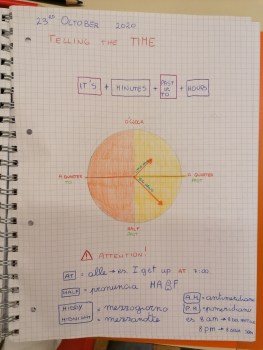 23rd OCTOBER 2020
TELLING THE TIME
IT'S + MINUTES + PAST OR TO + HOURS
O'CLOCK
A QUARTER TO
A QUARTER PAST
HALF PAST
ATTENTION!
AT = alle → es I get up at
HALF = pronuncia
MIDDAY = mezzogiorno
MIDNIGHT = mezzanotte
A.M. = antimeridiane
P.M. = pomeridiane
es 8 am →
8 pm →